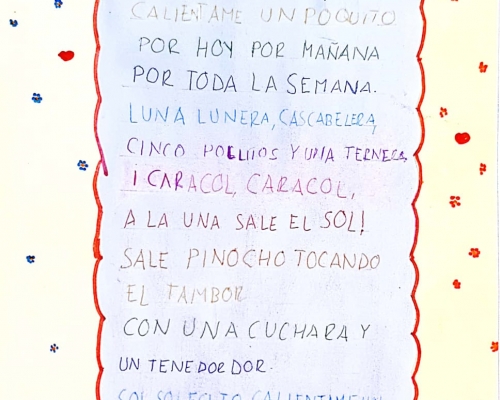 CALIENTAME UN POQUITO
POR HOY POR MAÑANA
POR TODA LA SEMANA.
LUNA LUNERA, CASCABELERA,
CINCO POLLIIOS Y UNA TERNERA,
¡CARACOL, CARACOL,
A LA UNA SALE EL SOL!
SALE PINOCHO TOCANDO
EL TAMBOR
CON UNA CUCHARA Y
UN TENEDOR DOR.
SOL SOLECITO CALIENTAME UN